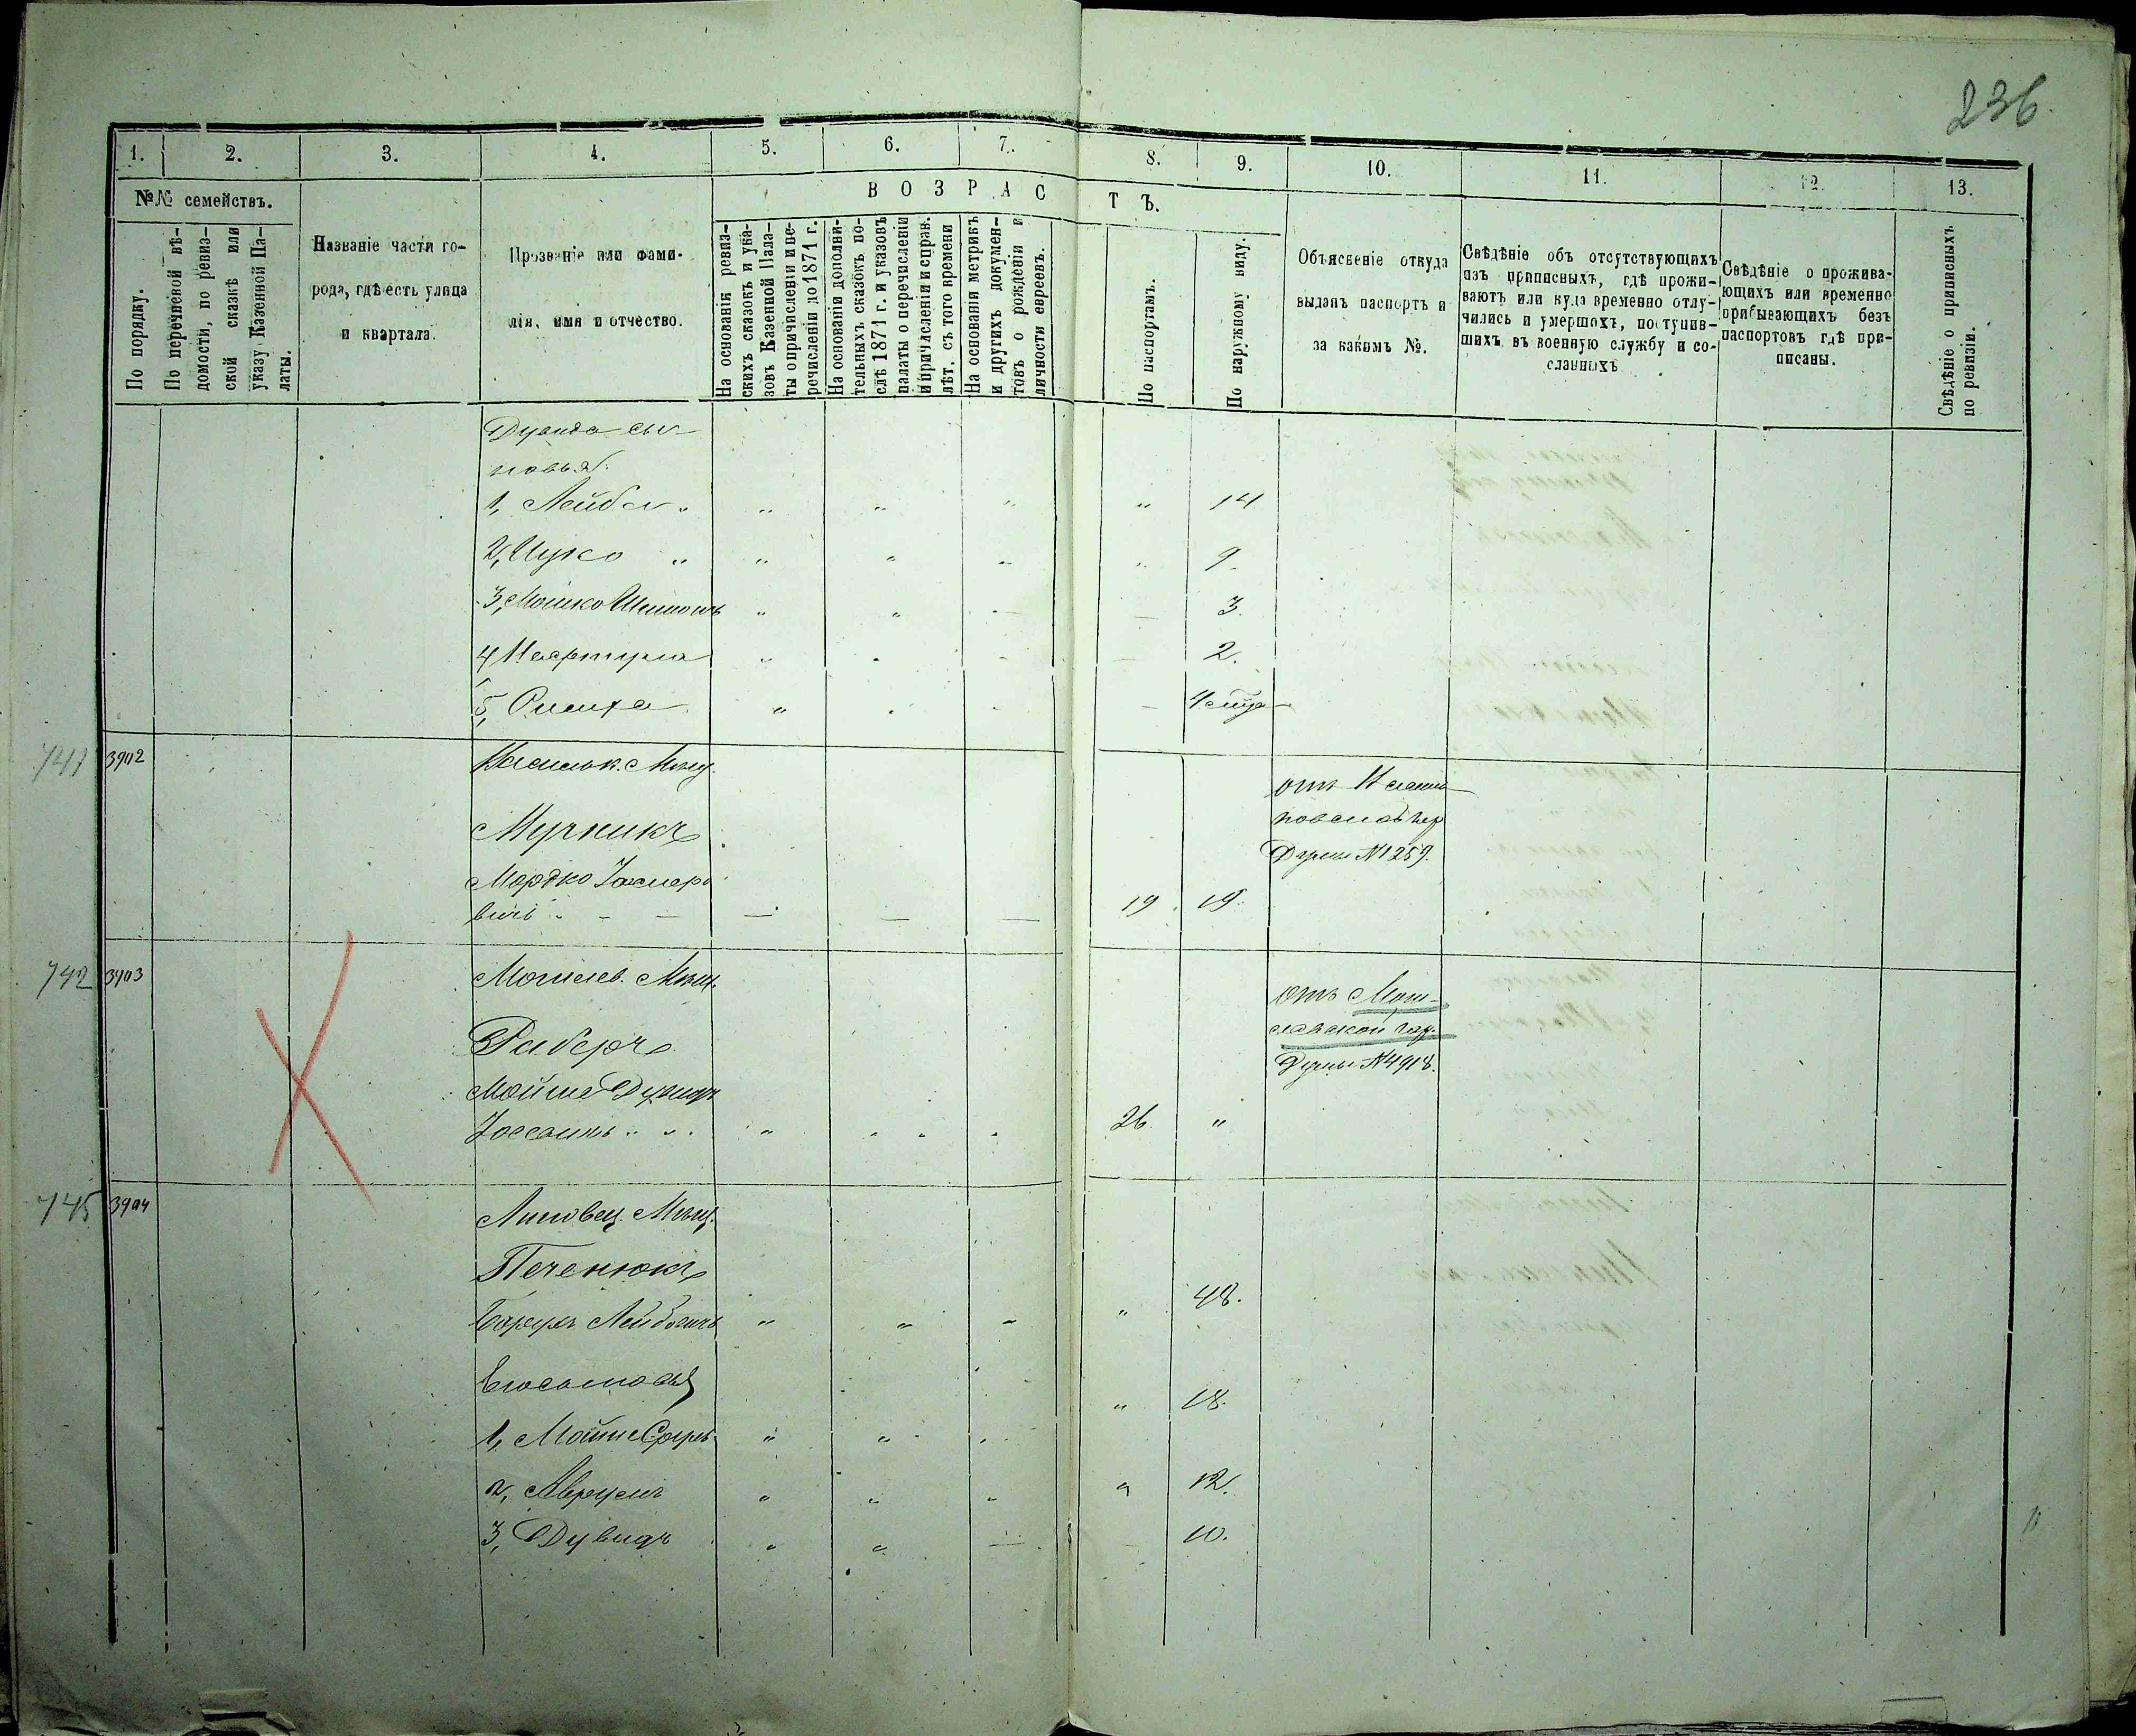 236
1. 2. 3. 4. 5. 6. 7. 8. 9. 10. 11. 12. 13.
№№ семействъ.
По порядку.
По перечневой вѣ-
домости, по ревиз-
ской сказкѣ или
указу Казенной Па-
латы.
Названіе части го-
рода, гдѣ есть улица
и квартала.
Прозваніе или фами-
лія, имя и отчество.
ВОЗРАСТЪ.
На основаніи ревиз-
скихъ сказокъ и ука-
зовъ Казенной Пала-
ты о причисленіи и пе-
речисленіи до 1871 г.
На основаніи дополни-
тельныхъ сказокъ по-
слѣ 1871 г. и указовъ
палаты о перечисленіи
и причисленіи и справ.
лѣт. съ того времени
На основаніи метрикъ
и другихъ докумен-
товъ о рожденіи и
личности евреевъ.
По паспортамъ.
По наружному виду.
Объясненіе откуда
выданъ паспортъ и
за какимъ №.
Свѣдѣніе объ отсутствующихъ
изъ приписныхъ, гдѣ прожи-
ваютъ или куда временно отлу-
чились и умершихъ, поступив-
шихъ въ военную службу и со-
сланныхъ
Свѣдѣніе о прожива-
ющихъ или временно
прибывающихъ безъ
паспортовъ гдѣ при-
писаны.
Свѣдѣніе о приписныхъ
по ревизіи.
Дувида сы-
новья:
1, Лейба " " " " " 14
2, Ицко " " " " " 9.
3, Мошко Шимонъ " " 3.
4, Нафтула " 2.
5, 4 м
741 3902 Мѣщ.
Мучникъ
Мордко
вичъ 19 19.
Думы №1259.
742 3903 Могилев. Мѣщ.
Рабергъ
Мойше Дувидъ
26 "
отъ Моги-
левской гор.
Думы №4918.
745 3904 Липовец. Мѣщ.
Печенюкъ
Борухъ Лейбовичъ " " " " 48.
Сыновья
1, Мойше Срулъ " " " " 18.
2, Аврумъ " " " " 12.
3, Дувидъ " " 10.